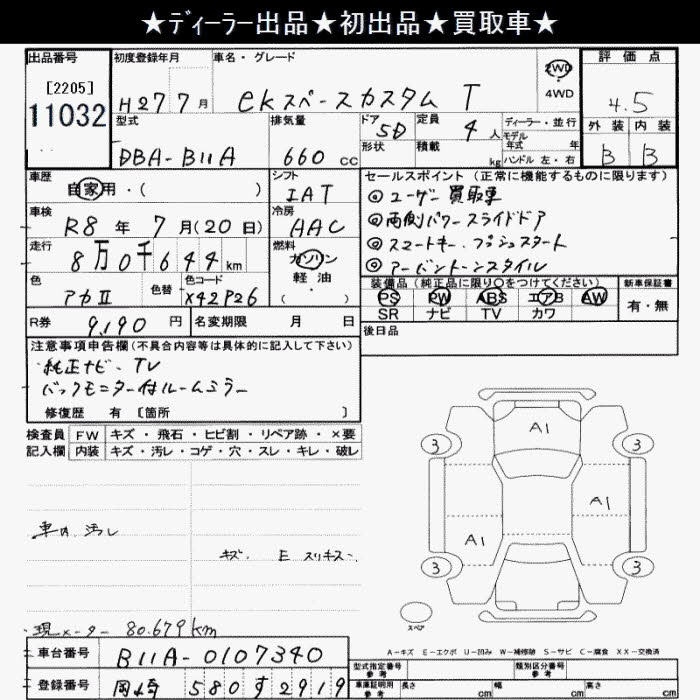 ★ディーラー出品★初出品★買取車★
出品番号
[2205]
11032
初度登録年月
H27 7月
車名・グレード
ekスペースカスタム T
2WD
4WD
評価点
4.5
外装 内装
B B
型式
DBA-B11A
排気量
660 cc
ドア
5D
形状
定員
4人
積載
kg
ディーラー・並行
モデル
年式 年
ハンドル 左・右
車歴
自家用・( )
シフト
IAT
セールスポイント(正常に機能するものに限ります)
◎ユーザー買取車
◎両側パワースライドドア
◎スマートキー、プッシュスタート
◎アーバントーンスタイル
車検
R8年 7月(20日)
冷房
AAC
走行
8万0千644km
燃料
ガソリン
軽油
( ・ )
色
アカII
色替
色コード
X42P26
装備品(純正品に限り〇をつけてください)
PS PW ABS エアB AW
SR ナビ TV カワ
新車保証書
有・無
R券
9,190 円
名変期限 月 日
後日品
注意事項申告欄(不具合内容等は具体的に記入して下さい)
・純正ナビ、TV
バックモニター付ルームミラー
修復歴 有 〔箇所 〕
検査員
記入欄
FW キズ・飛石・ヒビ割・リペア跡・×要
内装 キズ・汚レ・コゲ・穴・スレ・キレ・破レ
車内、汚レ
キズ、E スリキズ
現メーター 80.679km
A1
A1
A1
3
3
3
3
スペア
A-キズ E-エクボ U-凹み W-補修跡 S-サビ C-腐食 XX-交換済
車台番号
B11A-0107340
登録番号
岡崎 580 す 2919
型式指定番号
参考
類別区分番号
参考
車庫証明用
参考
長さ cm
幅 cm
高さ cm